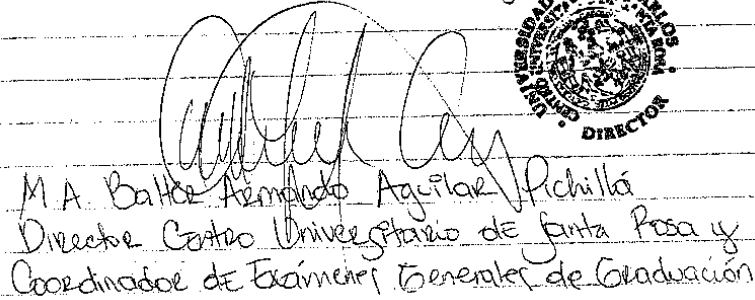 UNIVERSIDAD CARLOS
CENTRO UNIVERSITARIO SANTA ROSA
DIRECTOR
M.A. Balter Armando Aguilar Pichillá
Director Centro Universitario de Santa Rosa y
Coordinador de Exámenes Generales de Graduación